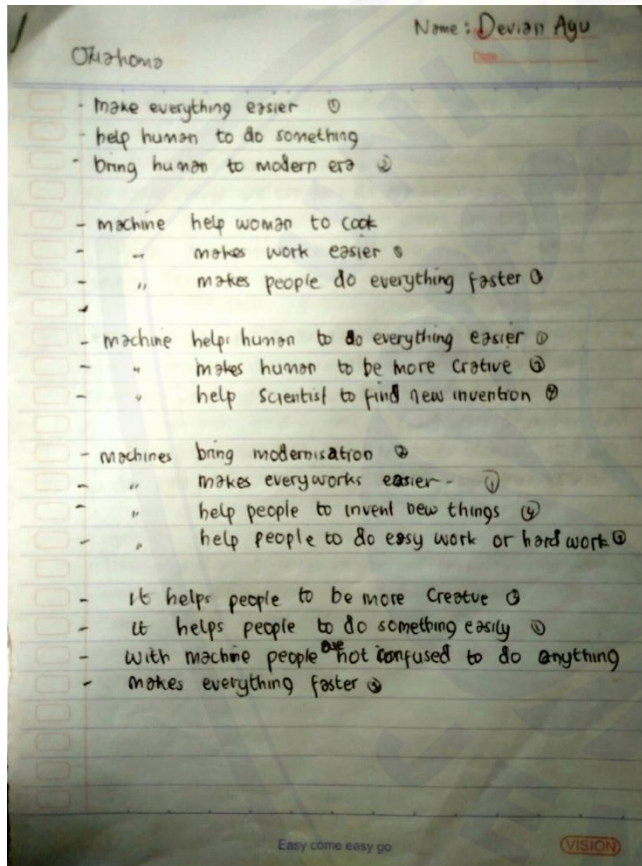 Name : Devian Ayu
Date
Oklahoma
- make everything easier ①
- help human to do something
- bring human to modern era ②
- machine help woman to cook
- " makes work easier
- " makes people do everything faster
-
- machine helps human to do everything easier ①
- " makes human to be more Crative ③
- " help Scientist to find new invention
- machines bring modernisation ②
- " makes everyworks easier - ①
- " help people to invent new things ④
- " help people to do easy work or hard work
- It helps people to be more Creatve
- it helps people to do something easily ①
- with machine people are not confused to do anything
- makes everything faster
Easy come easy go
VISION